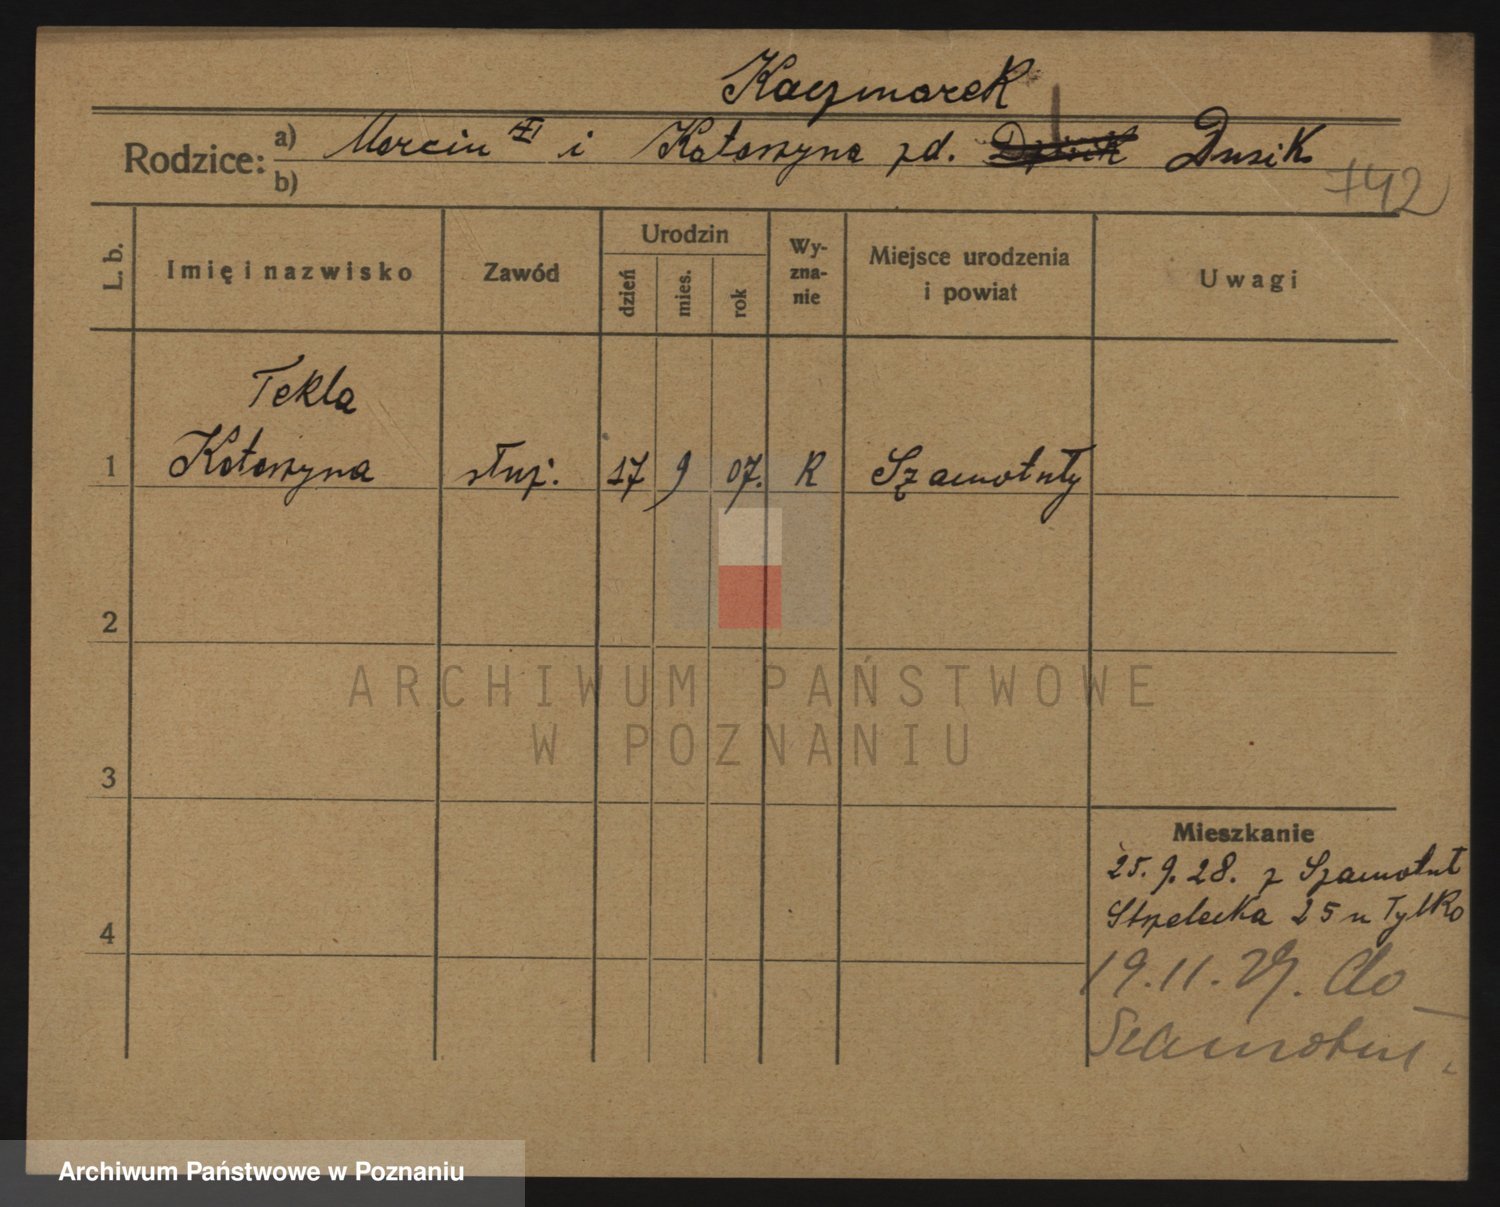 Kaczmarek
Rodzice: a) Marcin i Katarzyna zd. Dusik
b)
742
L. b.
Imię i nazwisko
Zawód
Urodzin
dzień
mies.
rok
Wy-
zna-
nie
Miejsce urodzenia
i powiat
Uwagi
Tekla
1 Katarzyna służ. 17 9 07. R Szamotuły
2
3
4
ARCHIWUM PAŃSTWOWE
W POZNANIU
Mieszkanie
25.9.28. z Szamotuł
Strzelecka 25 u Tylko
19.11.29. do
Szamotuł.
Archiwum Państwowe w Poznaniu